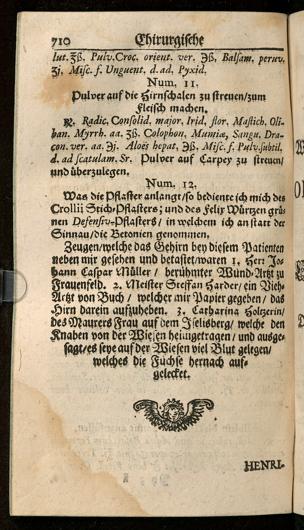 710 Chirurgische
lut. ʒß. Pulv. Croc. orient. ver. ℈ß, Balsam. peruv.
ʒj. Misc. f. Unguent. d. ad, Pyxid.
Num. 11.
Pulver auf die Hirnschalen zu streuen/zum
Fleisch machen.
℞. Radic. Consolid. major. Irid. flor. Mastich. Oli-
ban. Myrrh. aa. ʒß. Colophon. Mumiæ, Sangu. Dra-
con. ver. aa. ℈j. Aloës hepat. ℈ß, Misc. f. Pulv. subtil.
d. ad scatulam. Sr. Pulver auf Carpey zu streuen/
und überzulegen.
Num. 12.
Was die Pflaster anlangt/so bediente ich mich des
Crollii Stich-Pflasters; und des Felix Würtzen grü-
nen Defensiv-Pflasters/ in welchem ich an statt der
Sinnau/die Betonien genommen.
Zeugen/welche das Gehirn bey diesem Patienten
neben mir gesehen und betastet/waren 1. Herr Jo-
hann Caspar Müller/ berühmter Wund-Artzt zu
Frauenfeld. 2. Meister Steffan Harder/ ein Vieh-
Artzt von Buch/ welcher mir Papier gegeben/ das
Hirn darein aufzuheben. 3. CatharinaHoltzerin/
des Maurers Frau auf dem Iselisberg/ welche den
Knaben von der Wiesen heimgetragen/ und ausge-
sagt/es seye auf der Wiesen viel Blut gelegen/
welches die Füchse hernach auf-
gelecket.
HENRI-